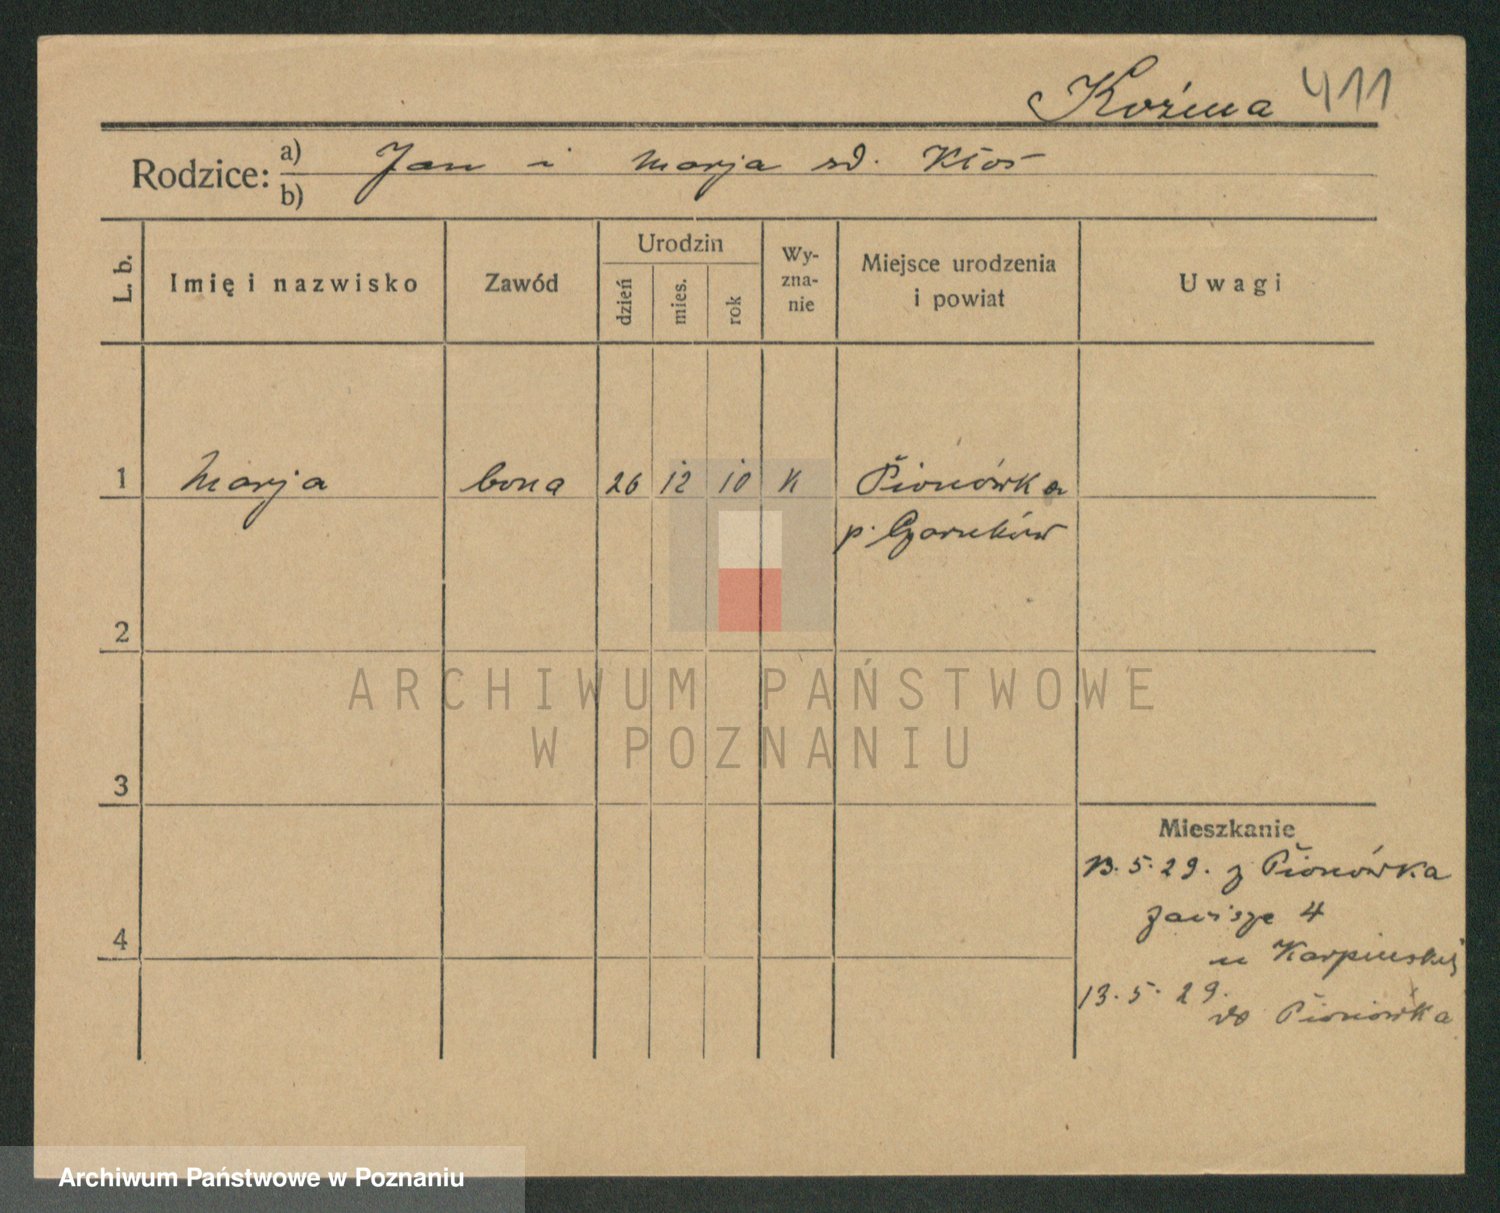 Koźma 411
Rodzice: a) Jan i Marja zd. Kłos
b)
L. b. Imię i nazwisko Zawód Urodzin dzień mies. rok Wy-zna-nie Miejsce urodzenia i powiat Uwagi
1 Marja bona 26 12 10 K Pionówka
p. Czarnków
2
3
4
Mieszkanie
13.5.29. z Pionówka
Zawisze 4
u Karpińskiej
13.5.29.
do Pionówka
ARCHIWUM PAŃSTWOWE
W POZNANIU
Archiwum Państwowe w Poznaniu